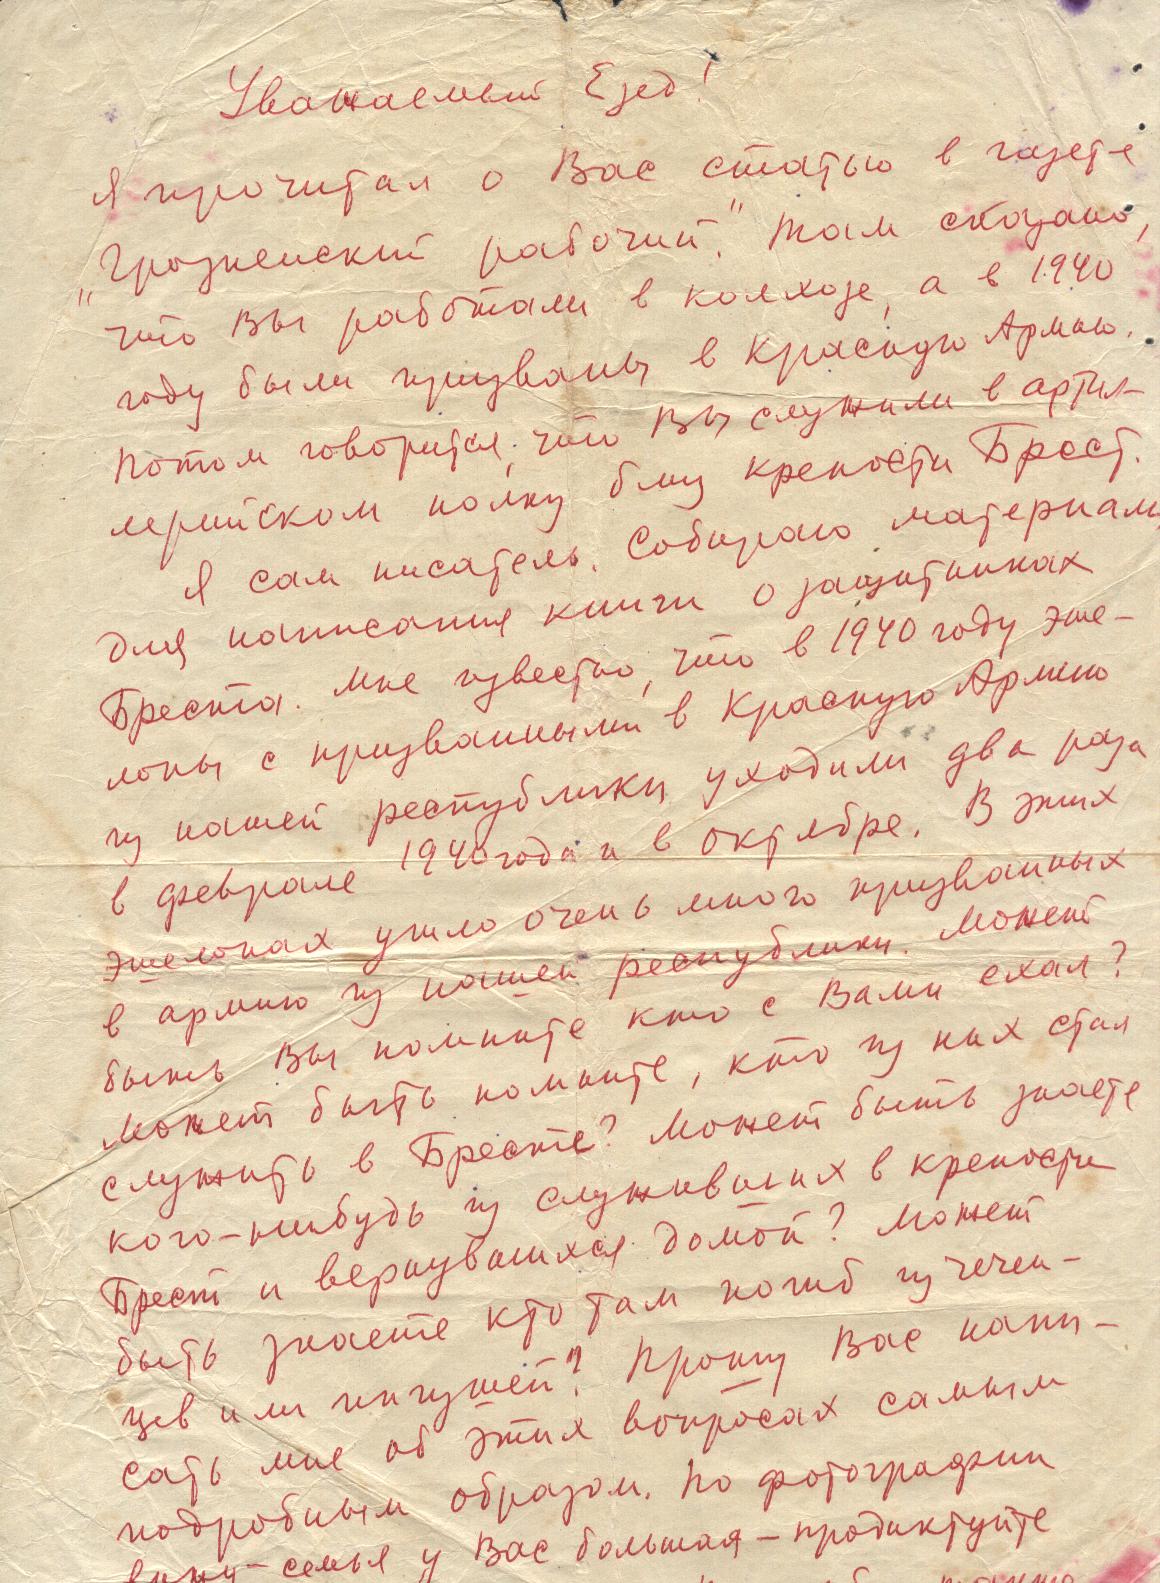 Уважаемый Езед!
Я прочитал о Вас статью в газете
„Грозненский рабочий." Там сказано,
что Вы работали в колхозе, а в 1940
году были призваны в Красную Армию.
Потом говорится, что Вы служили в артил-
лерийском полку близ крепости Брест.
Я сам писатель. Собираю материалы
для написания книги о защитниках
Бреста. Мне известно, что в 1940 году эше-
лоны с призванными в Красную Армию
из нашей республики уходили два раза
в феврале 1940 года и в октябре. В этих
эшелонах ушло очень много призванных
в армию из нашей республики. Может
быть Вы помните кто с Вами ехал?
Может быть помните, кто из них стал
служить в Бресте? Может быть знаете
кого-нибудь из служивших в крепости
Брест и вернувшихся домой? Может
быть знаете кто там погиб из чечен-
цев или ингушей? Прошу Вас напи-
сать мне об этих вопросах самым
подробным образом. По фотографии
вижу – семья у Вас большая – продиктуйте